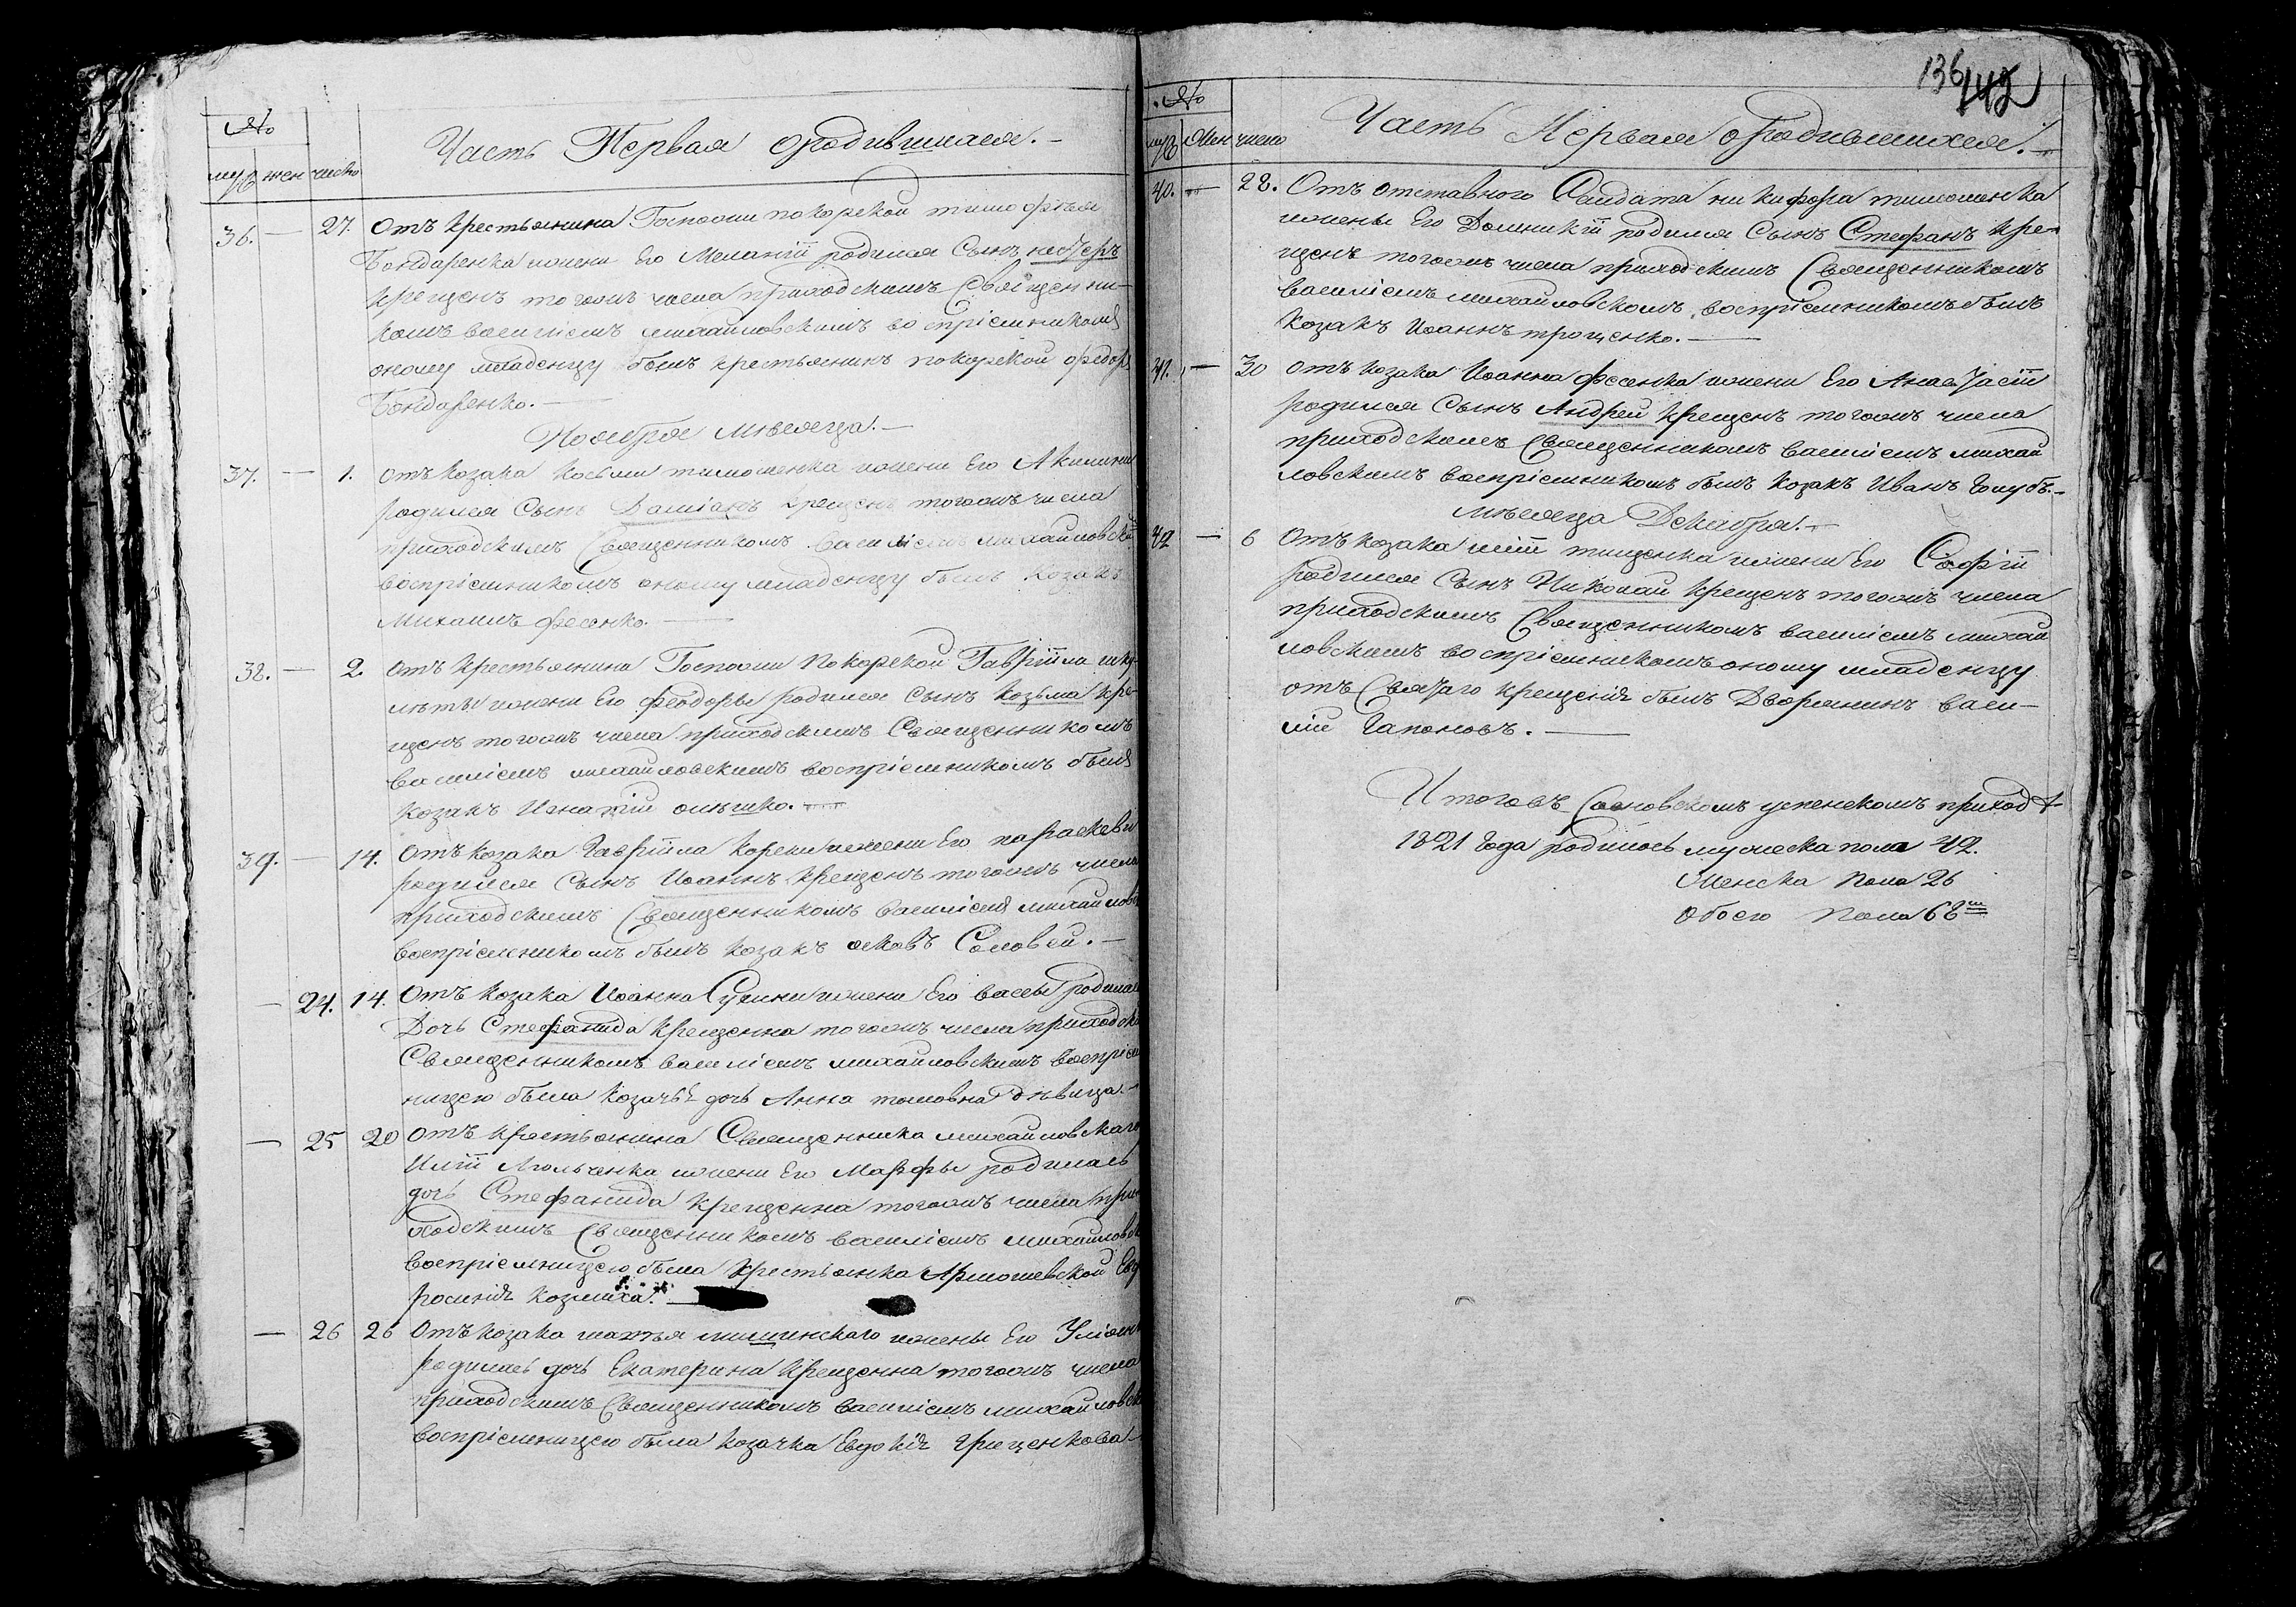 №
муж жен число
Часть Первая о родившихся.
36. — 27. Отъ крестьянина Госпожи покорской тимофѣя
Бондаренка жени Его Меланіи родился Сынъ
крещенъ тогожъ числа приходскимъ Священни-
комъ василіемъ михайловскимъ воспріемникомъ
оному младенцу былъ крестьянинъ покорской федоръ
Бондаренко.
Ноября Мѣсяца.
37. — 1. Отъ козака Косьми тимошенка жени Его Акилини
родился Сынъ Даміанъ крещенъ тогожъ числа
приходскимъ Священникомъ Василіемъ михайловски
воспріемникомъ оному младенцу былъ Козакъ
Михаилъ фесенко.
38. — 2. Отъ крестьянина Госпожи Покорской Гавріила
жени Его Феодоры родился Сынъ Козьма кре-
щенъ тогожъ числа приходскимъ Священникомъ
василіемъ михайловскимъ воспріемникомъ былъ
козакъ Игнатій
39. — 14. Отъ козака Гавріила жени Его параскеви
родился Сынъ Иоаннъ крещенъ тогожъ числа
приходскимъ Священникомъ василіемъ михайловс
воспріемникомъ былъ козакъ яковъ Соловей.
— 24. 14. Отъ козака Иоанна жени Его вассы родилась
Дочь Стефанида крещенна тогожъ числа приходски
Священникомъ василіемъ михайловскимъ воспріем
ницею была козачья дочь Анна дѣвица.
— 25 20 Отъ крестьянина Священника михайловскаго
Иліи жени Его Марфы родилась
дочь Стефанида крещенна тогожъ числа при
ходскимъ Священникомъ василіемъ михайловск
воспріемницею была крестьянка
— 26 26 Отъ козака жены Его
родилась дочь Екатерина крещенна тогожъ числа
приходскимъ Священникомъ василіемъ михайловск
воспріемницею была козачка Евдокія Грищенкова
136 142
№
муж Жен число
Часть Первая о родившихся.
40. — 28. Отъ отставного Салдата никифора тимошенка
жены Его Домникіи родился Сынъ Стефанъ кре-
щенъ тогожъ числа приходскимъ Священникомъ
василіемъ михайловскимъ, воспріемникомъ былъ
козакъ Иоаннъ троценко.
41. — 30 Отъ козака Иоанна фесенка жени Его Анастасіи
родился Сынъ Андрей крещенъ тогожъ числа
приходскимъ Священникомъ василіемъ михай
ловскимъ воспріемникомъ былъ козакъ Иванъ Голубъ.
Мѣсяца Декабря.
42 — 6 Отъ козака иліи тищенка жени Его Софіи
родился Сынъ Николай крещенъ тогожъ числа
приходскимъ Священникомъ василіемъ михай
ловскимъ воспріемникомъ оному младенцу
отъ Святаго крещенія былъ Дворянинъ васи-
лій Гапоновъ.
Итого въ Сосновскомъ успенскомъ приходѣ
1821 Года родилось мужеска пола 42.
Женска пола 26
Обоего пола 68